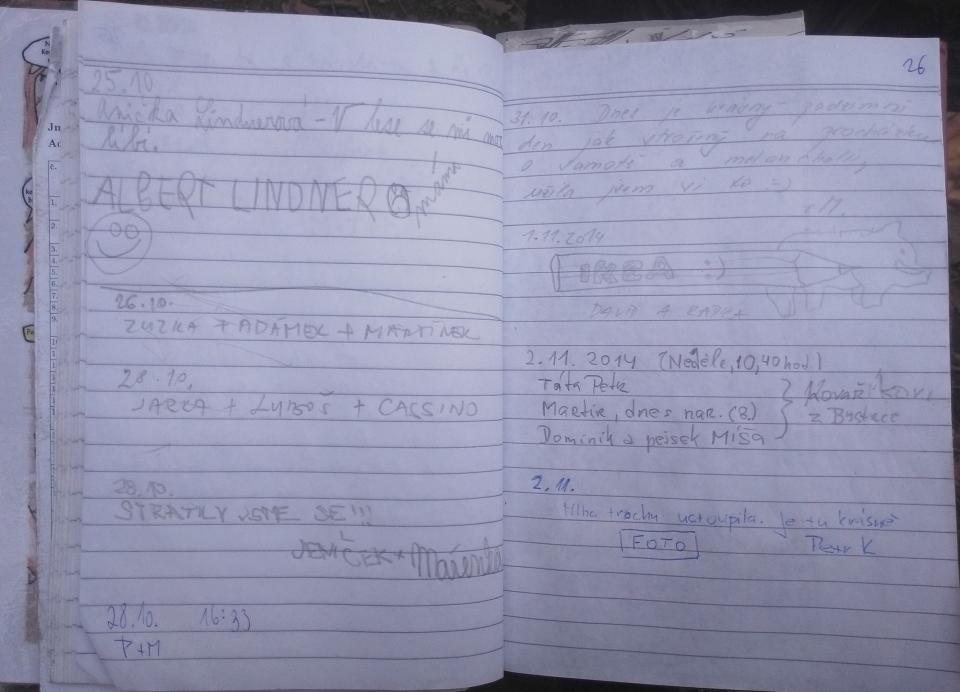 25.10
Anička Lindnerová - V lese se mi moc
líbí.
ALBERT LINDNER
máma
26.10.
ZUZKA + ADÁMEK + MARTÍNEK
28.10.
JARKA + LUBOŠ + CASSINO
28.10.
STRATILY JSME SE!!!
JENÍČEK + Mařenka
28.10. 16:33
P+M
26
31.10. Dnes je krásný podzimní
den jak stvořený na procházku
o samotě a
1.11.2014
IKEA :)
DAVID A
2.11. 2014 (Neděle, 10,40hod.)
Táta Petr
Martin, dnes nar. (8.)
Dominik a pejsek Míša
Kovaříkovi
z Bystrce
2.11.
Mlha trochu ustoupila. Je tu krásně
FOTO
Petr K